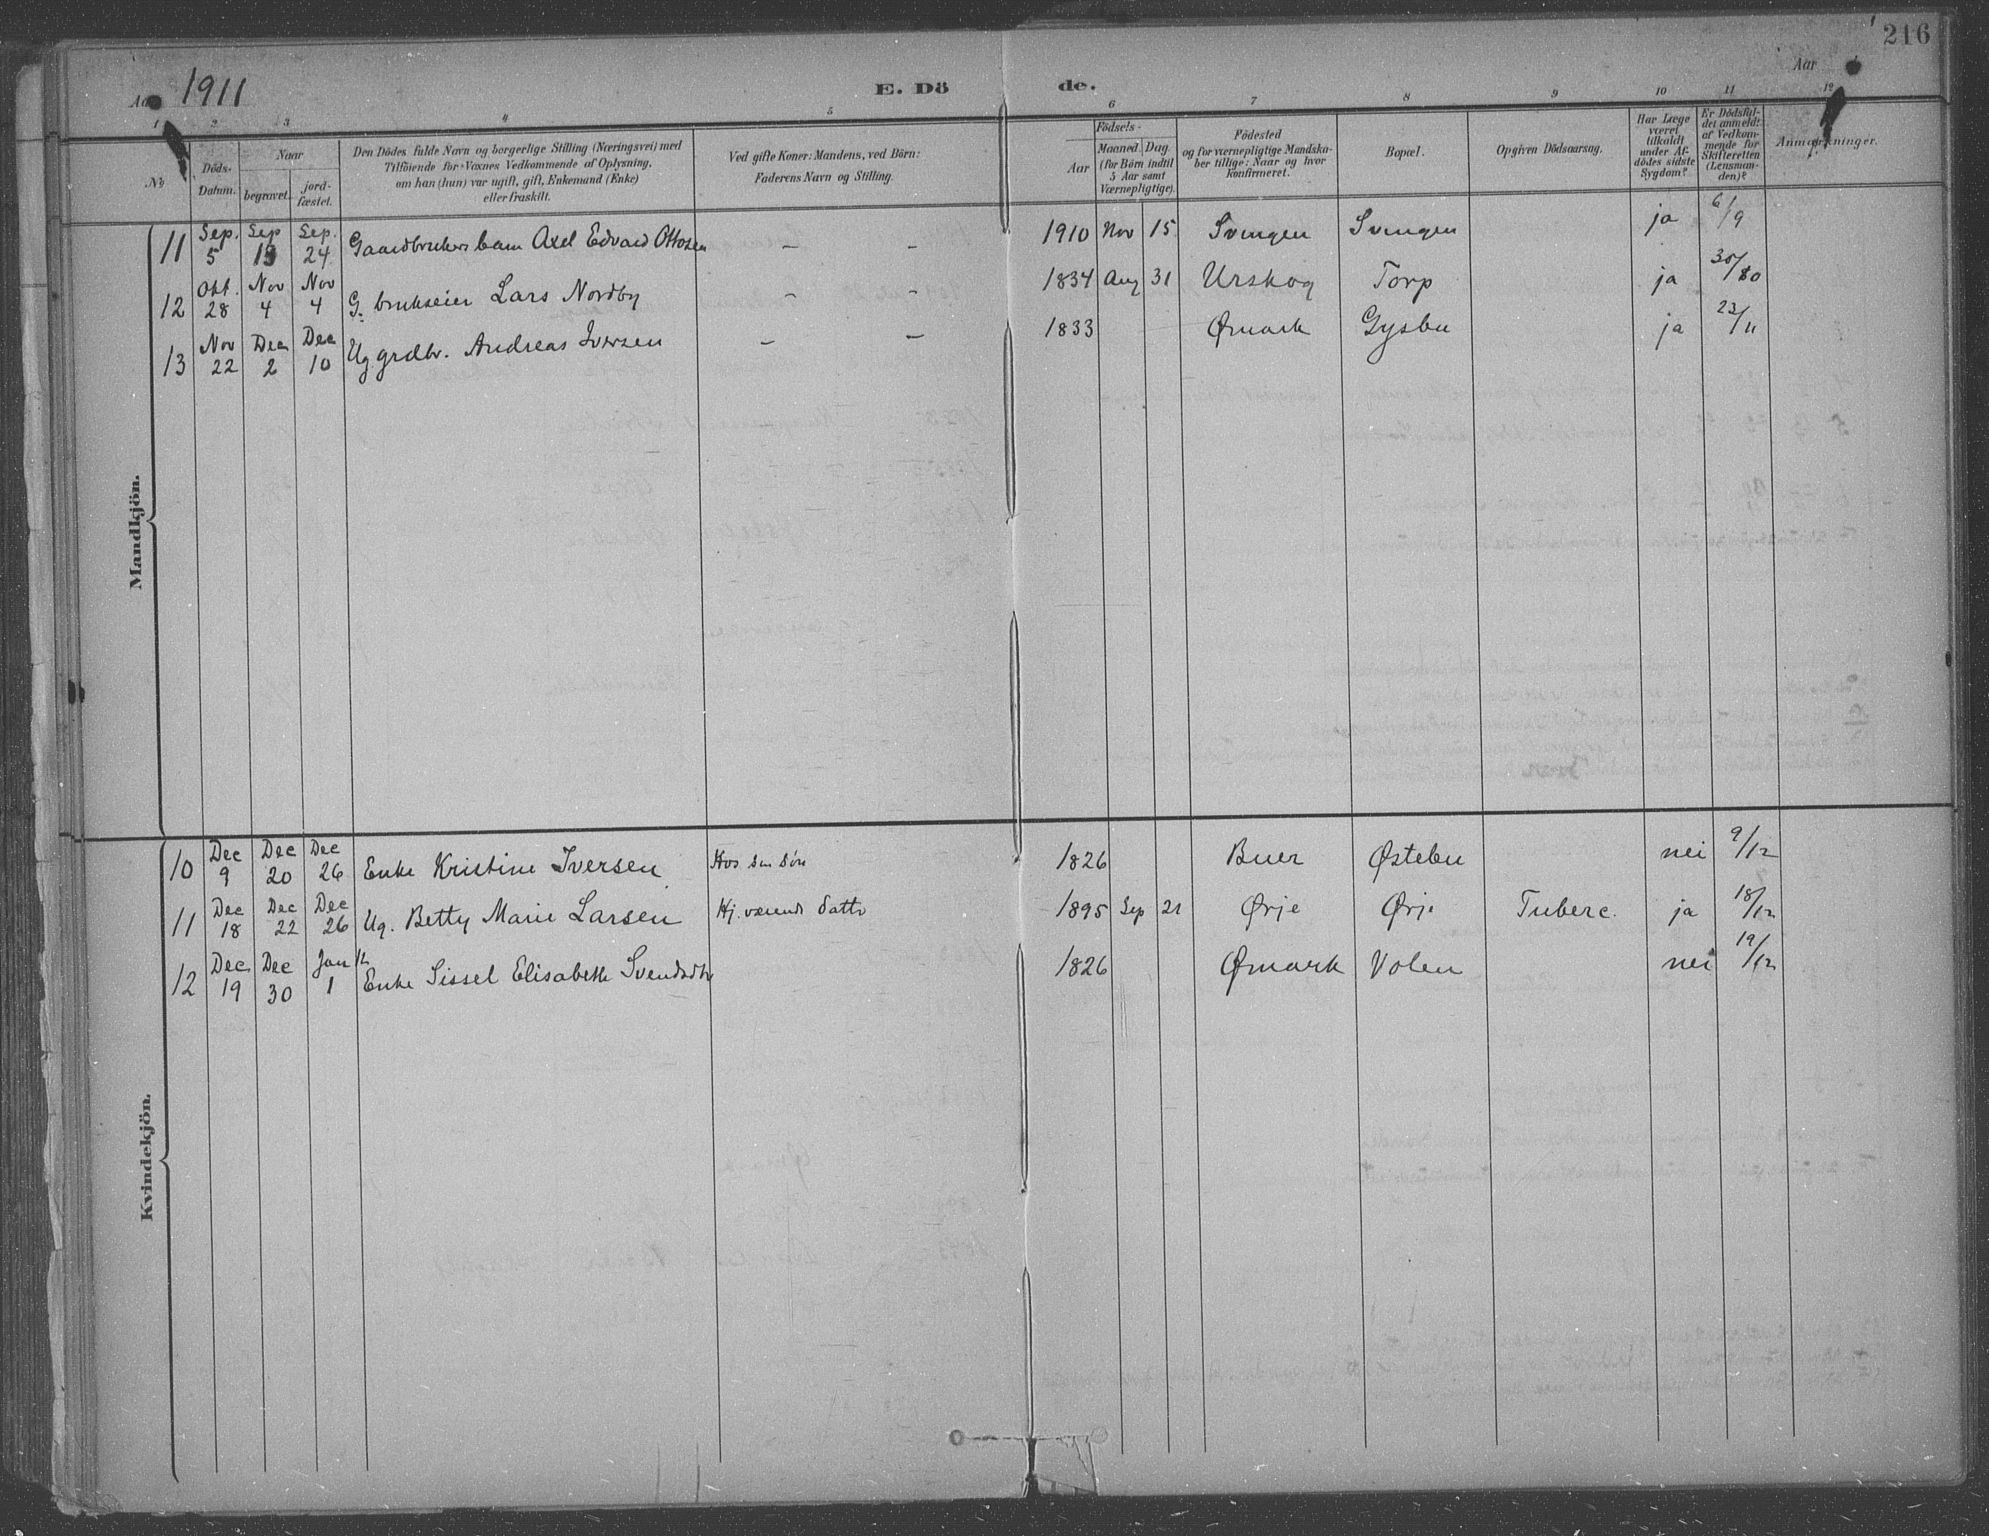 216
Aar 1911 E. Dö de. Aar
1 2 3 4 5 6 7 8 9 10 11 12
No
Döds-Datum.
Naar
begravet.
jord-fæstet.
Den Dödes fulde Navn og borgerlige Stilling (Næringsvei) med
Tilföiende for Voxnes Vedkommende af Oplysning,
om han (hun) var ugift, gift, Enkemand (Enke)
eller fraskilt.
Ved gifte Koner: Mandens, ved Börn:
Faderens Navn og Stilling.
Födsels-
Aar
Maaned. Dag.
(for Börn indtil
5 Aar samt
Værnepligtige).
Födested
og for værnepligtige Mandska-
ber tillige: Naar og hvor
konfirmeret.
Bopæl.
Opgiven Dödsaarsag.
Har Læge
været
tilkaldt
under Af-
dödes sidste
Sygdom?
Er Dödsfal-
det anmeldt
af Vedkom-
mende for
Skifteretten
(Lensman-
den)?
Anmærkninger.
Mandkjön.
11 Sep. 5 Sep 13 Sep. 24 Gaardbrukers barn Axel Edvard Ottosen – – 1910 Nov 15 Svingen Svingen ja 6/9
12 Okt. 28 Nov 4 Nov 4 G. brukseier Lars Nordby – – 1834 Aug 31 Urskog Torp ja 30/10
13 Nov 22 Dec 2 Dec 10 Ug grdbr. Andreas Iversen – – 1833 Ømark Gysbu ja 23/11
Kvindekjön.
10 Dec 9 Dec 20 Dec 26 Enke Kristine Iversen Hos sin søn 1826 Buer Østebu nei 9/12
11 Dec 18 Dec 22 Dec 26 Ug. Betty Marie Larsen Hj. værende datter 1895 Sep 21 Ørje Ørje Tuberc. ja 18/12
12 Dec 19 Dec 30 Jan 12 1 Enke Sissel Elisabeth Svendsdtr 1826 Ømark Volen nei 19/12